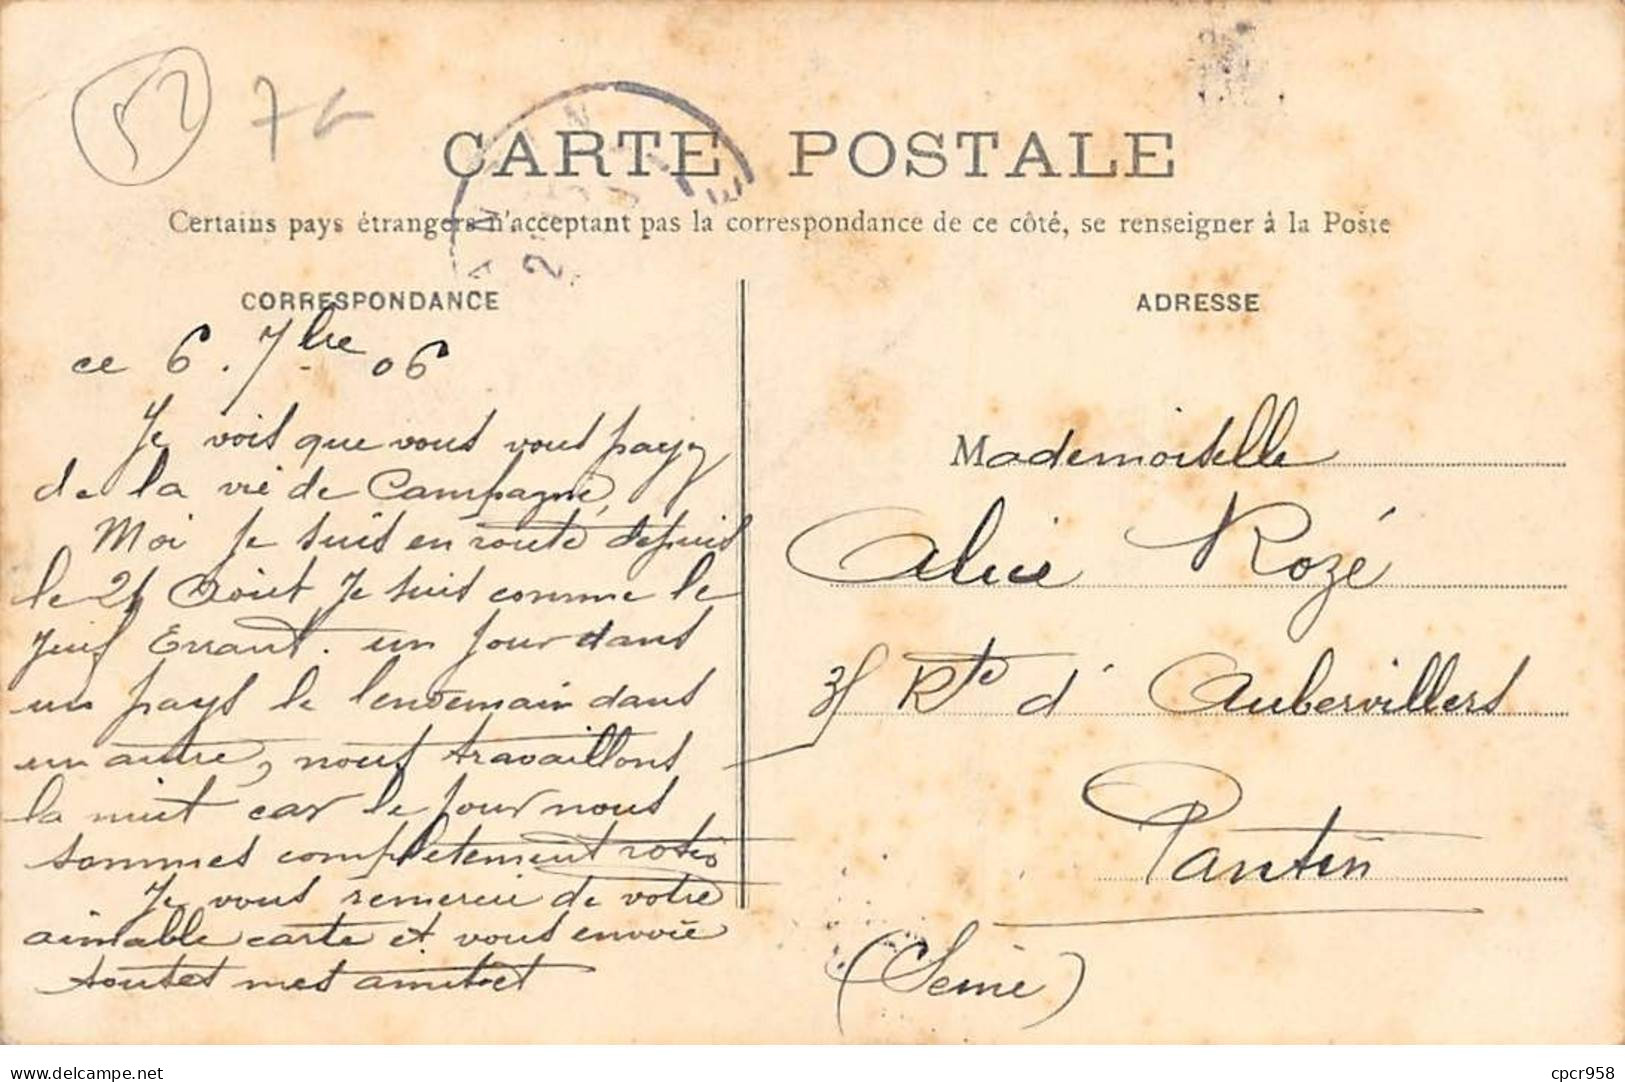 52
CARTE POSTALE
Certains pays étrangers n'acceptant pas la correspondance de ce côté, se renseigner à la Poste
CORRESPONDANCE
ce 6. 7bre 06
Je vois que vous vous payez
de la vie de Campagne,
Moi Je suis en route depuis
le 21 Aout Je suis comme le
Juif Errant. un Jour dans
un pays le lendemain dans
un autre, nous travaillons
la nuit car le Jour nous
sommes completement rotis
Je vous remercie de votre
aimable carte et vous envoie
toutes mes amities
ADRESSE
Mademoiselle
Alice Rozé
Rte d'Aubervilliers
Pantin
(Seine)
delcampe.net
cpcr958